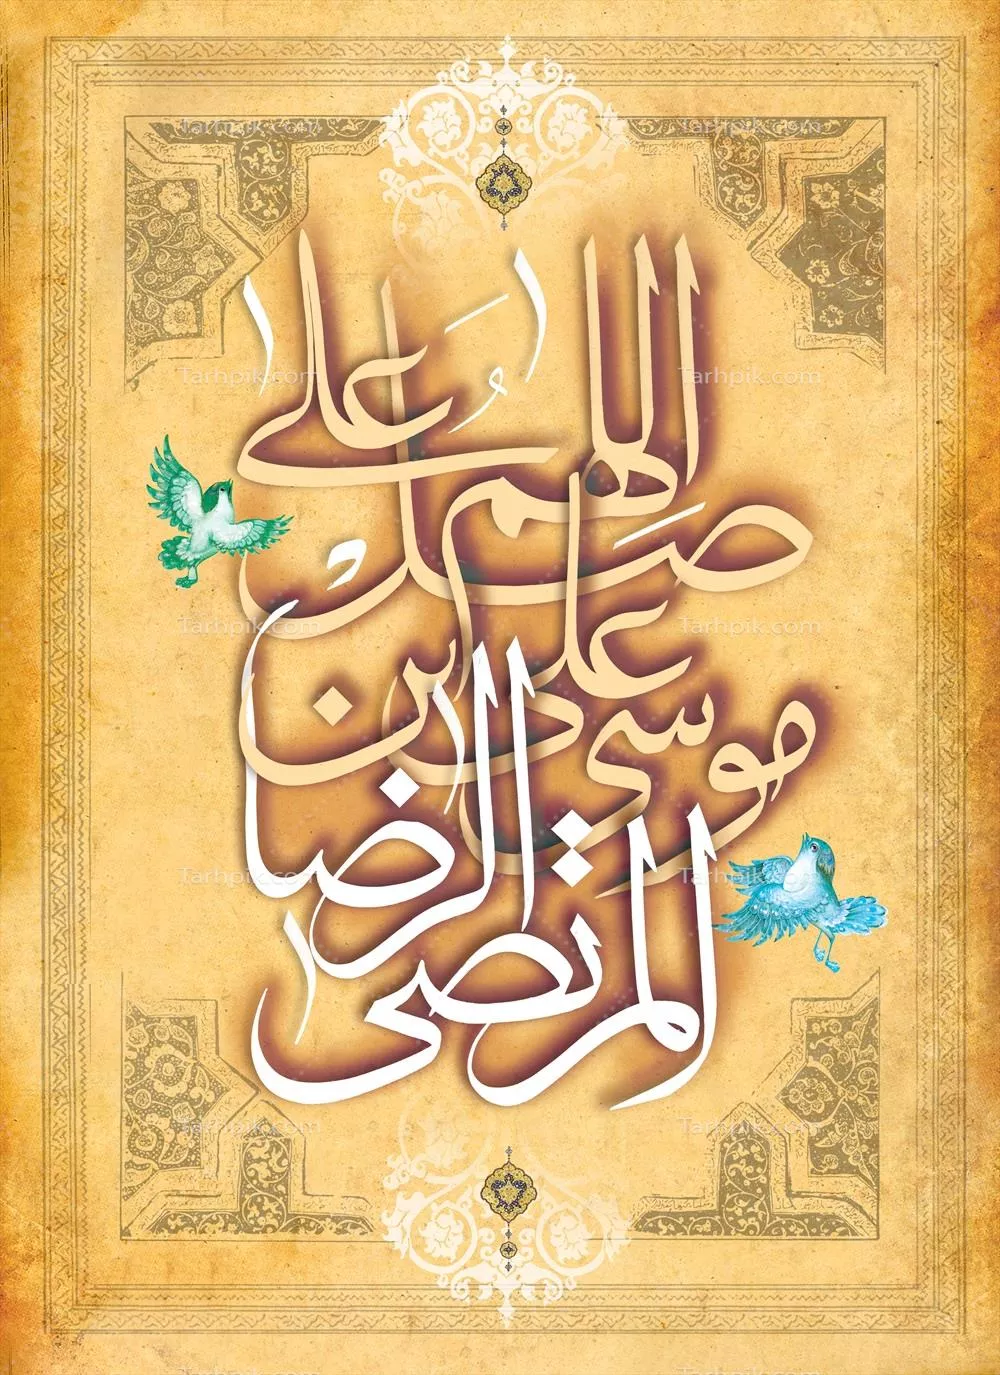 اللهم صل علی
علی ابن موسی
الرضا المرتضی
Tarhpik.com